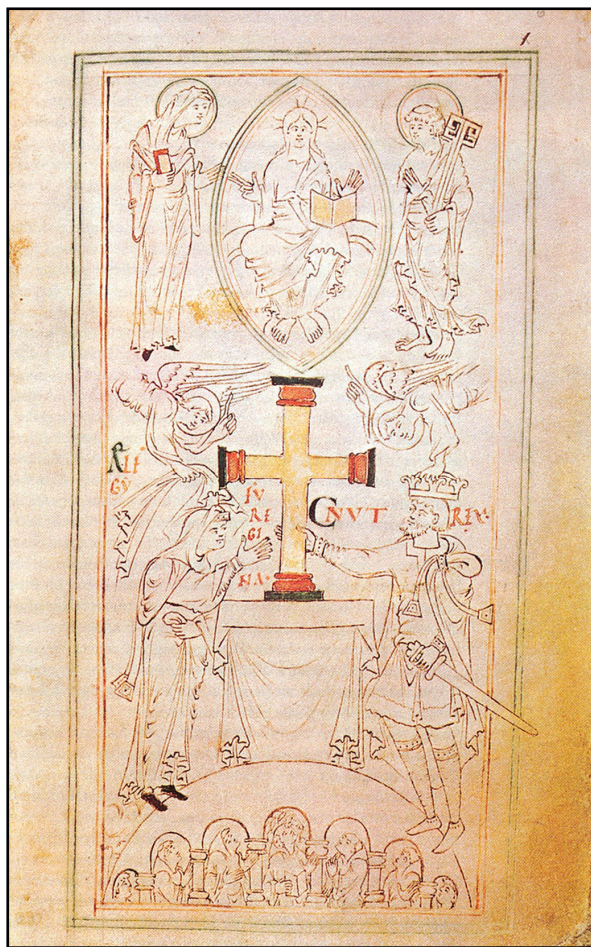 1.
ÆLF
GẎ
FV
RE
GI
NA·
CNVT REX·